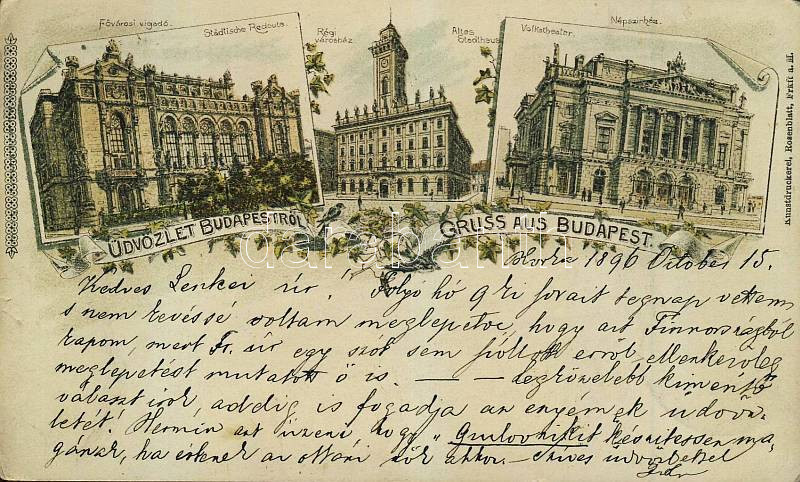 Fővárosi vigadó.
Städtische Redoute.
Régi városház.
Altes Stadthaus.
Volkstheater.
Népszinház.
ÜDVÖZLET BUDAPESTRŐL
GRUSS AUS BUDAPEST.
Kunstdruckerei, Rosenblatt, Frkft a. M.
darabanth
1896 October 15.
Kedves Lenkei úr! Folyó hó 9 ki sorait tegnap vettem
s nem kevéssé voltam meglepetve, hogy azt Finnországból
kapom, mert Fr. úr egy szót sem szólt erről ellenkezőleg
meglepetést mutatott ő is. — — Legközelebb kimentő
választ irok, addig is fogadja az enyémek üdvöz-
letét! Hermin azt üzeni hogy " készitessen ma-
gának, ha értenek az ottani akkor. Szives üdvözlettel